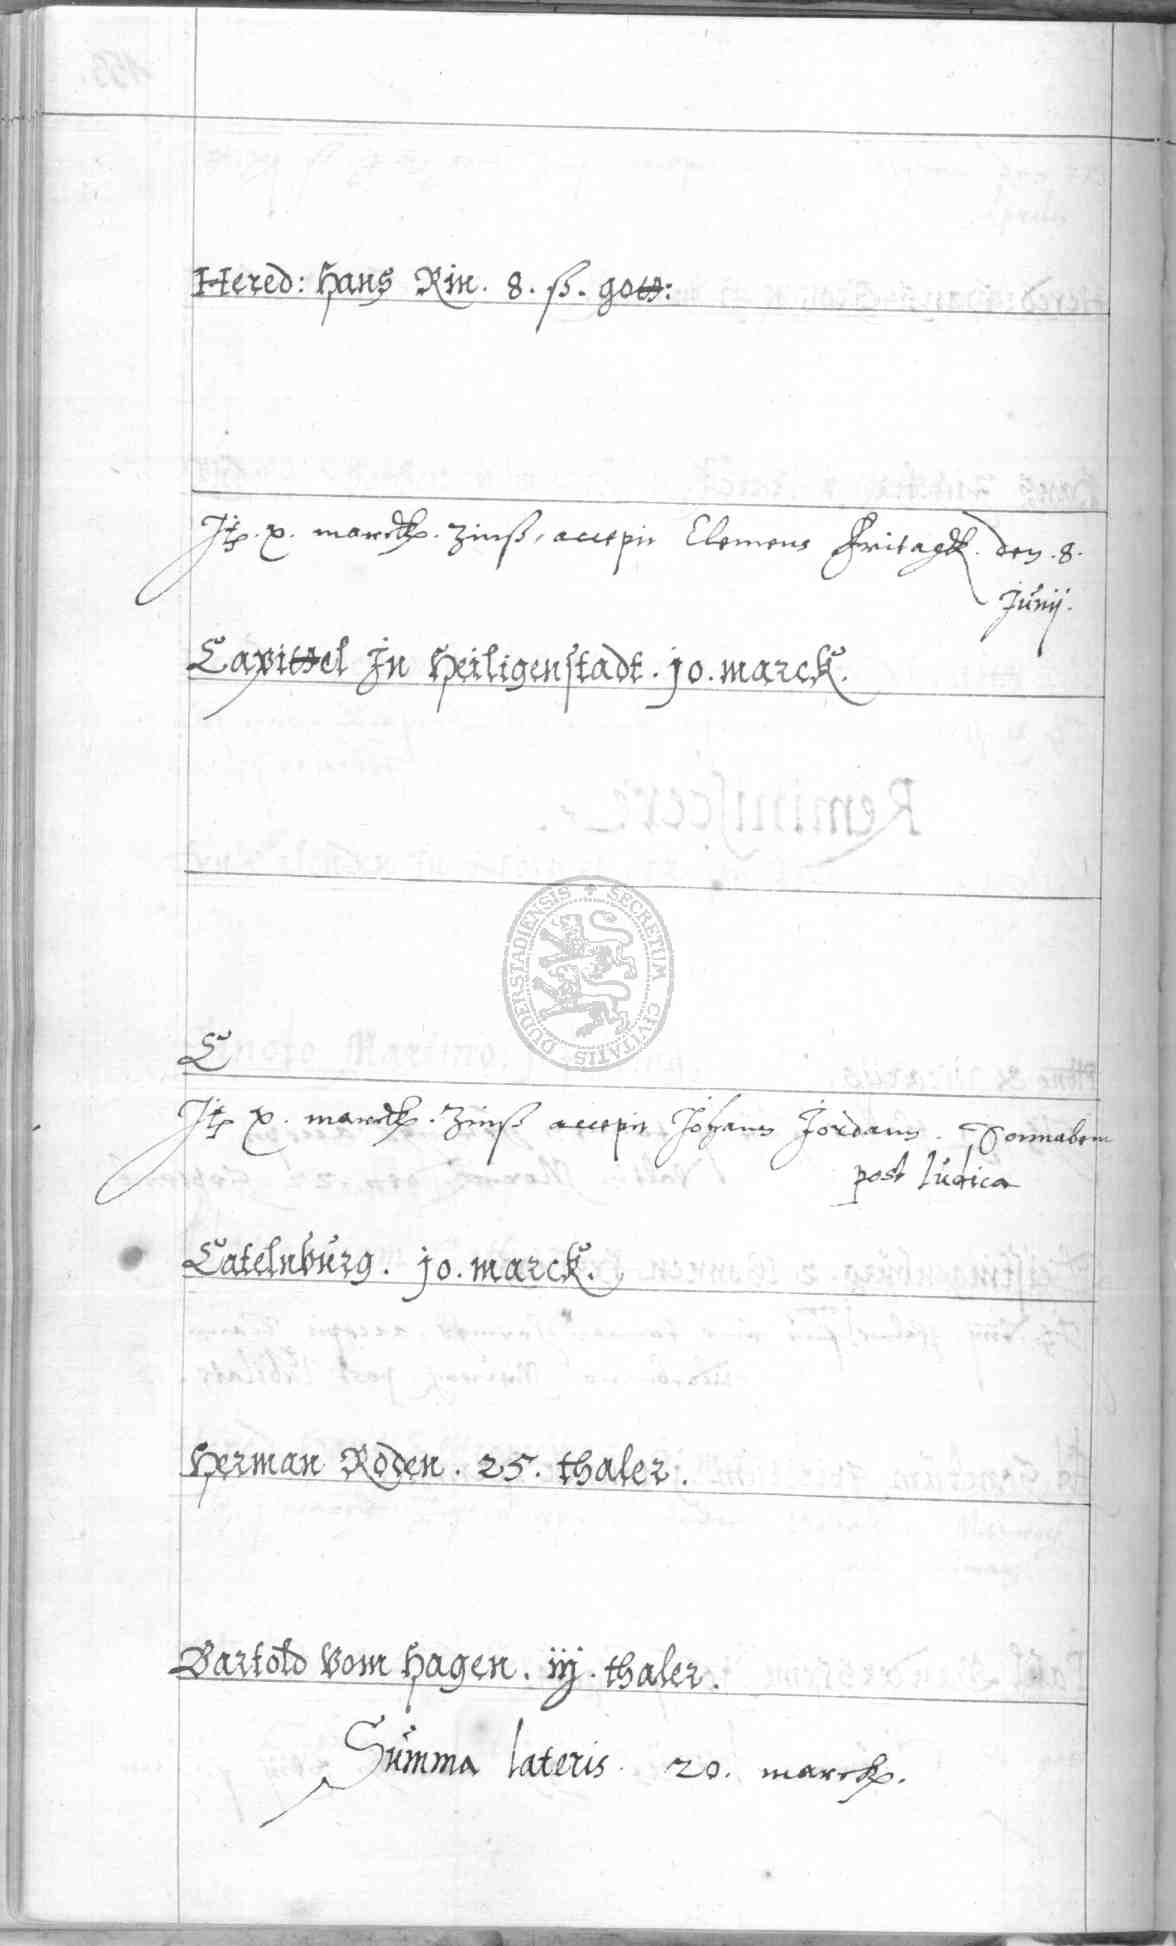 Hered: Hans Rin. 8. ß. gott:
It. x. marck. Zinß, accepit Clemens Fritagk. den. 8.
Junij.
Capittel Jn Heiligenstadt. jo. marck.
SECRETUM CIVITATIS DUDERSTADIENSIS
C
It x. marck. Zinß accepit Johann Jordann. Sonnabent
post Iudica
Catelnburg. jo. marck.
Herman Roden. 25. thaler.
Bartold Vom Hagen. iij. thaler.
Summa lateris. 20. marck.